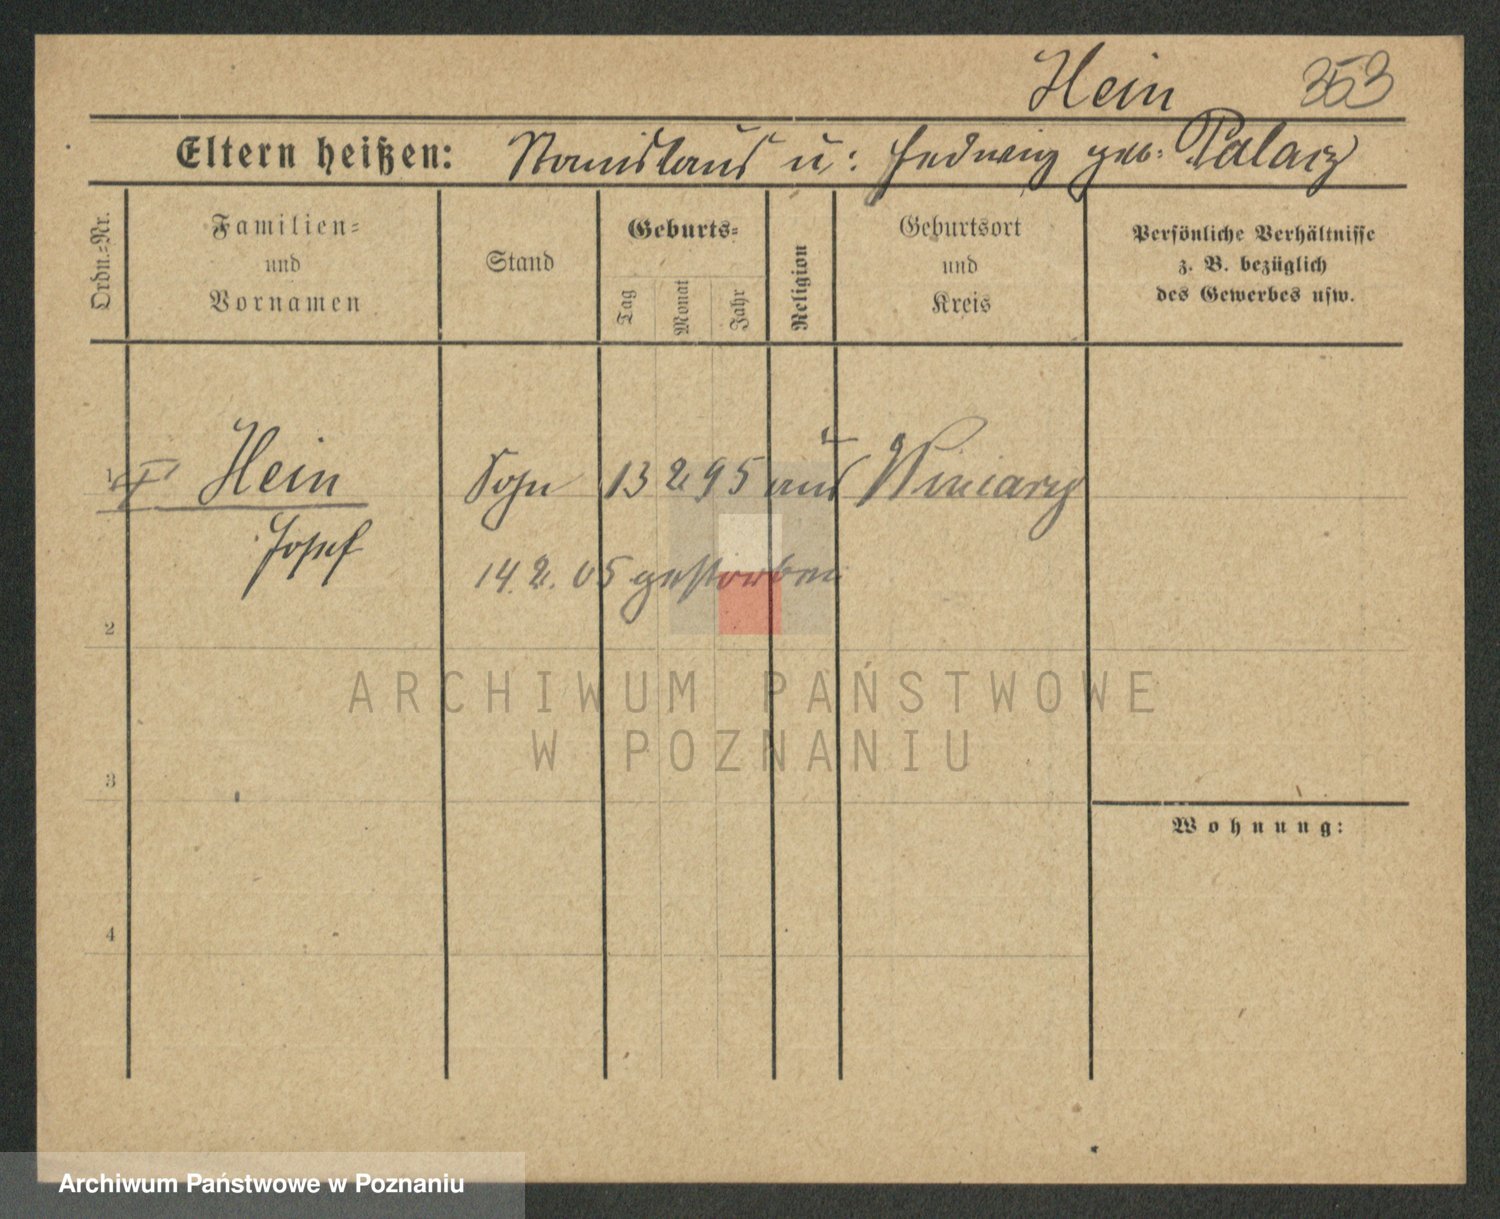 Hein 353
Eltern heißen: Stanislaus u: Hedwig geb: Palacz
Ordn.-Nr.
Familien-
und
Vornamen
Stand
Geburts-
Tag
Monat
Jahr
Religion
Geburtsort
und
Kreis
Persönliche Verhältnisse
z. B. bezüglich
des Gewerbes usw.
1 Hein Sohn 13 2 95 aus Winiary
Josef
14. 2. 05 gestorben
2
3
4
Wohnung:
ARCHIWUM PAŃSTWOWE
W POZNANIU
Archiwum Państwowe w Poznaniu